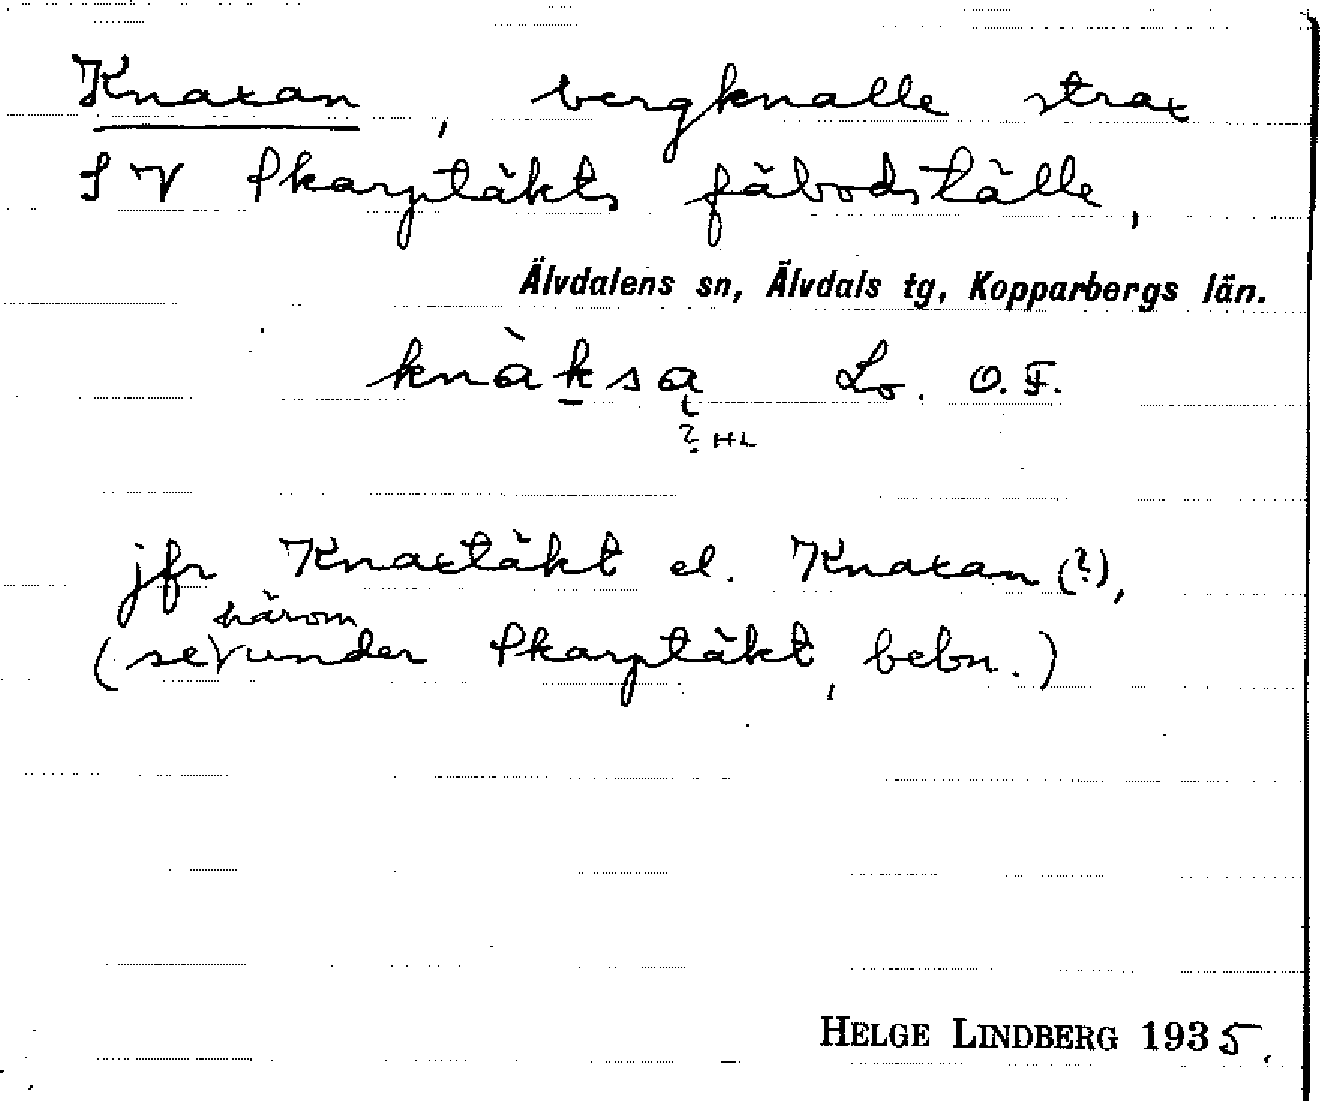 Knaxan, bergknalle strax
SV Skarptäkts fäbodställe,
Älvdalens sn, Älvdals tg, Kopparbergs län.
knàksą Lo. O.F.
? HL
jfr Knaxtäkt el. Knaxan (?),
(se härom under Skarptäkt, bebn.)
HELGE LINDBERG 1935.